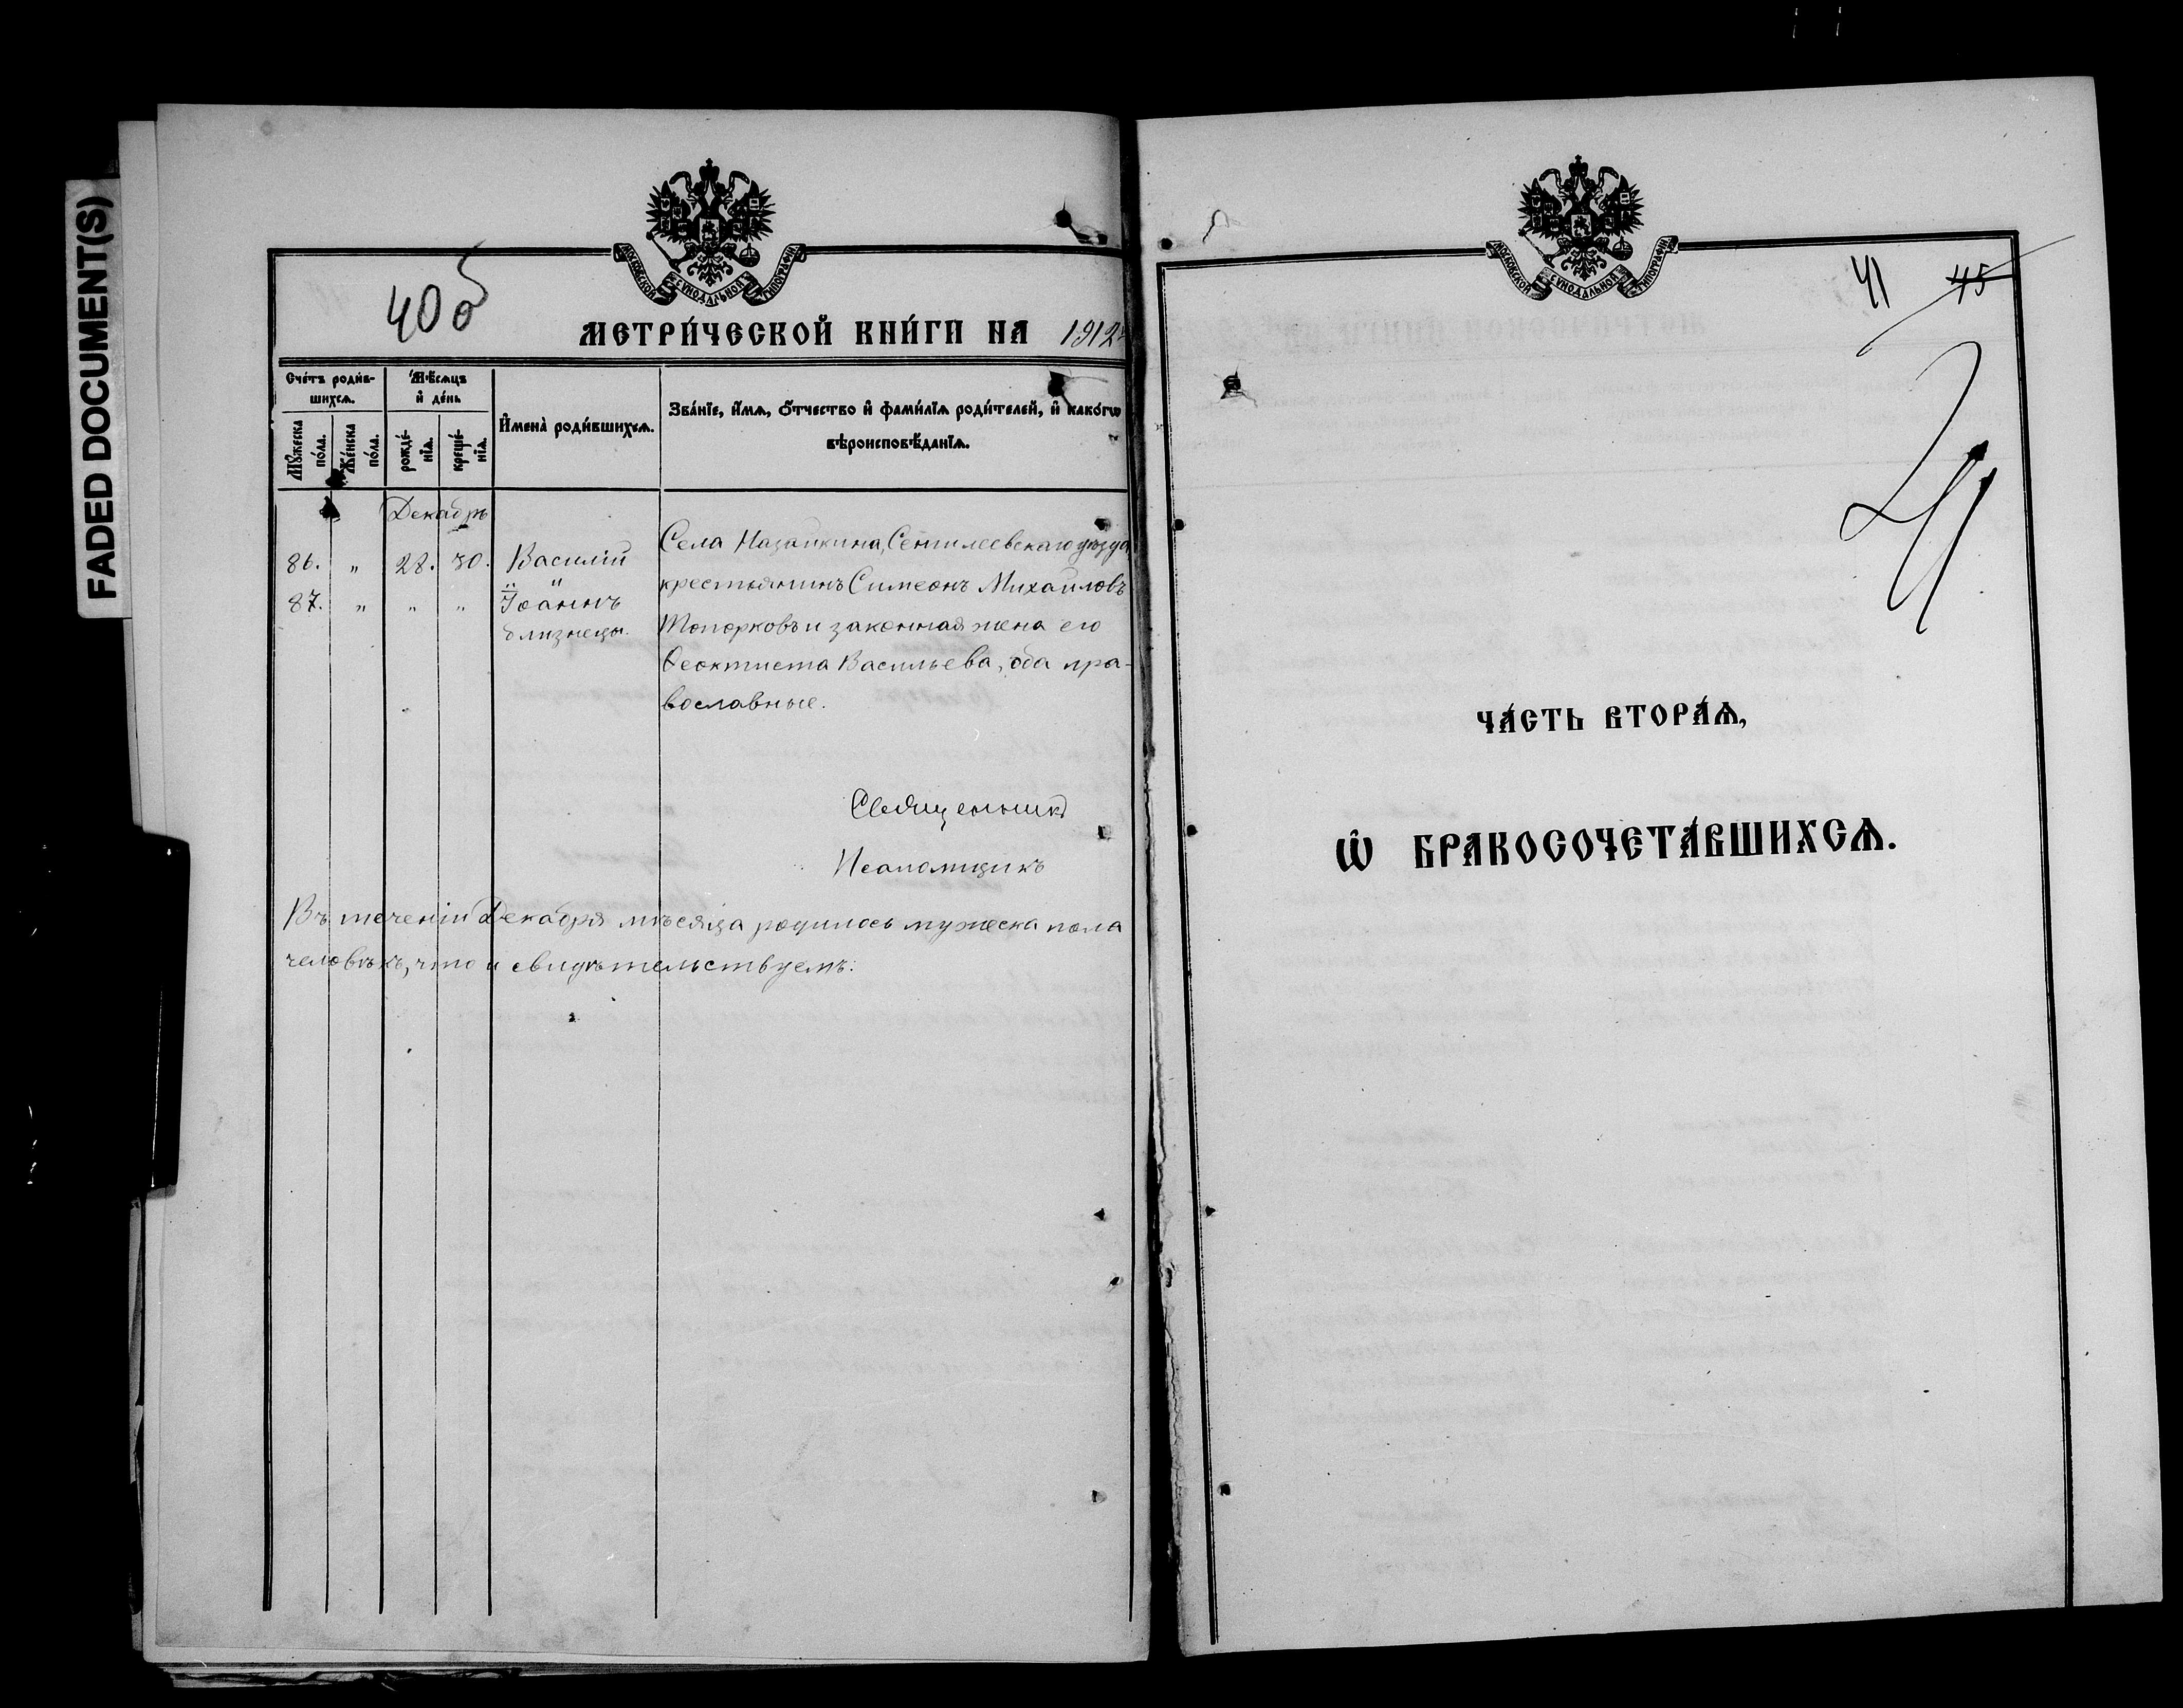 FADED DOCUMENT(S)
МОСКОВСКОЙ СѴНОДАЛЬНОЙ ТИПОГРАФІИ
40 об
МЕТРИ́ЧЕСКОЙ КНИ́ГИ НА 1912 г
Сче́тъ роди́в-
шихсѧ.
Мꙋ́жеска
по́ла.
Же́нска
по́ла.
Мѣ́сѧцъ
и҆ де́нь
рожде́-
нїѧ.
креще́-
нїѧ.
И҆мена̀ роди́вшихсѧ.
Зва́нїе, и҆́мѧ, ѻ҆́тчество и҆ фами́лїѧ роди́телей, и҆ како́гѡ
вѣроисповѣ́данїѧ.
Декабрь
86. " 28. 30. Василій
87. " " " Іоаннъ
близнецы.
Села Назайкина, Сенгилеевскаго уѣзда,
крестьянинъ Симеонъ Михаиловъ
Топорковъ и законная жена его
Ѳеоктиста Васильева, оба пра-
вославные.
Священникъ
Псаломщикъ
Въ теченіи Декабря мѣсяца родилось мужеска пола
человѣкъ, что и свидѣтельствуемъ:
МОСКОВСКОЙ СѴНОДАЛЬНОЙ ТИПОГРАФІИ
41 45
41
ЧА́СТЬ ВТОРА́Ѧ,
Ѡ҆ БРАКОСОЧЕТА́ВШИХСѦ.